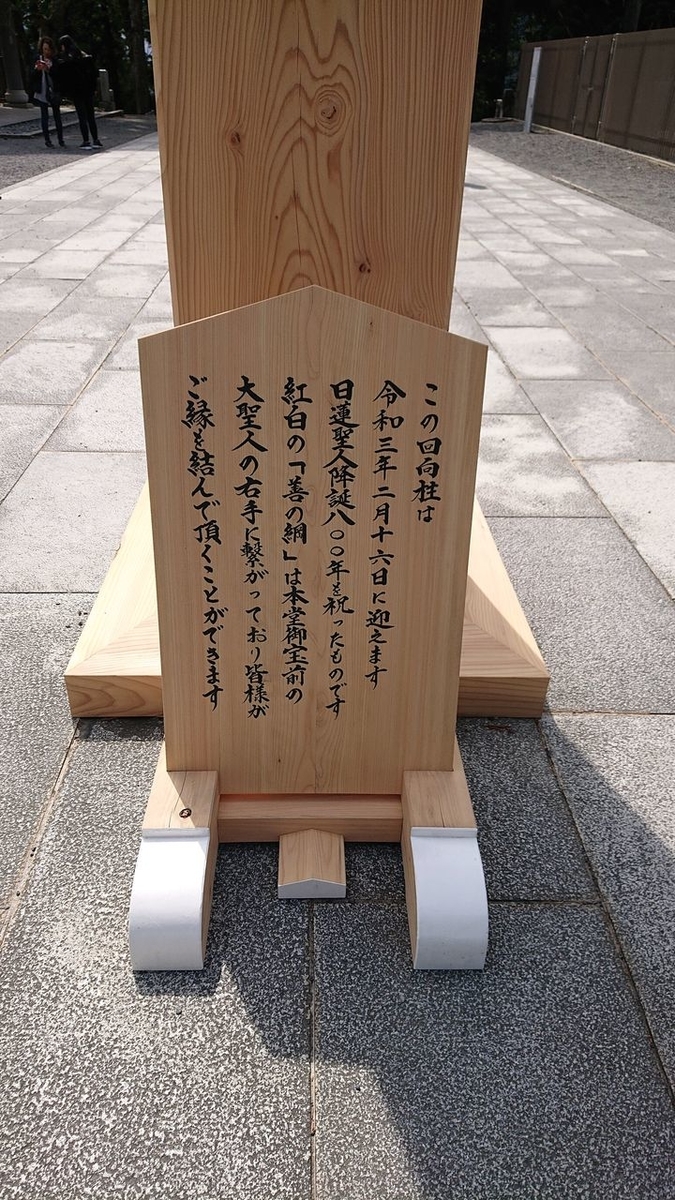 この回向柱は
令和三年二月十六日に迎えます
日蓮聖人降誕八〇〇年を祝ったものです
紅白の「善の綱」は本堂御宝前の
大聖人の右手に繋がっており皆様が
ご縁を結んで頂くことができます